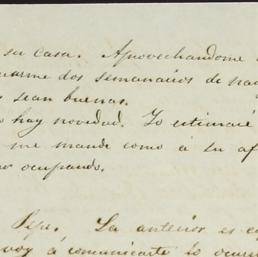 su casa. Aprovechandome
dos semanarios de
sean buenas.
hay novedad. Yo estimaré
me mande como á su af
ocupando.
Pepe. La anterior es
voy á comunicarte lo